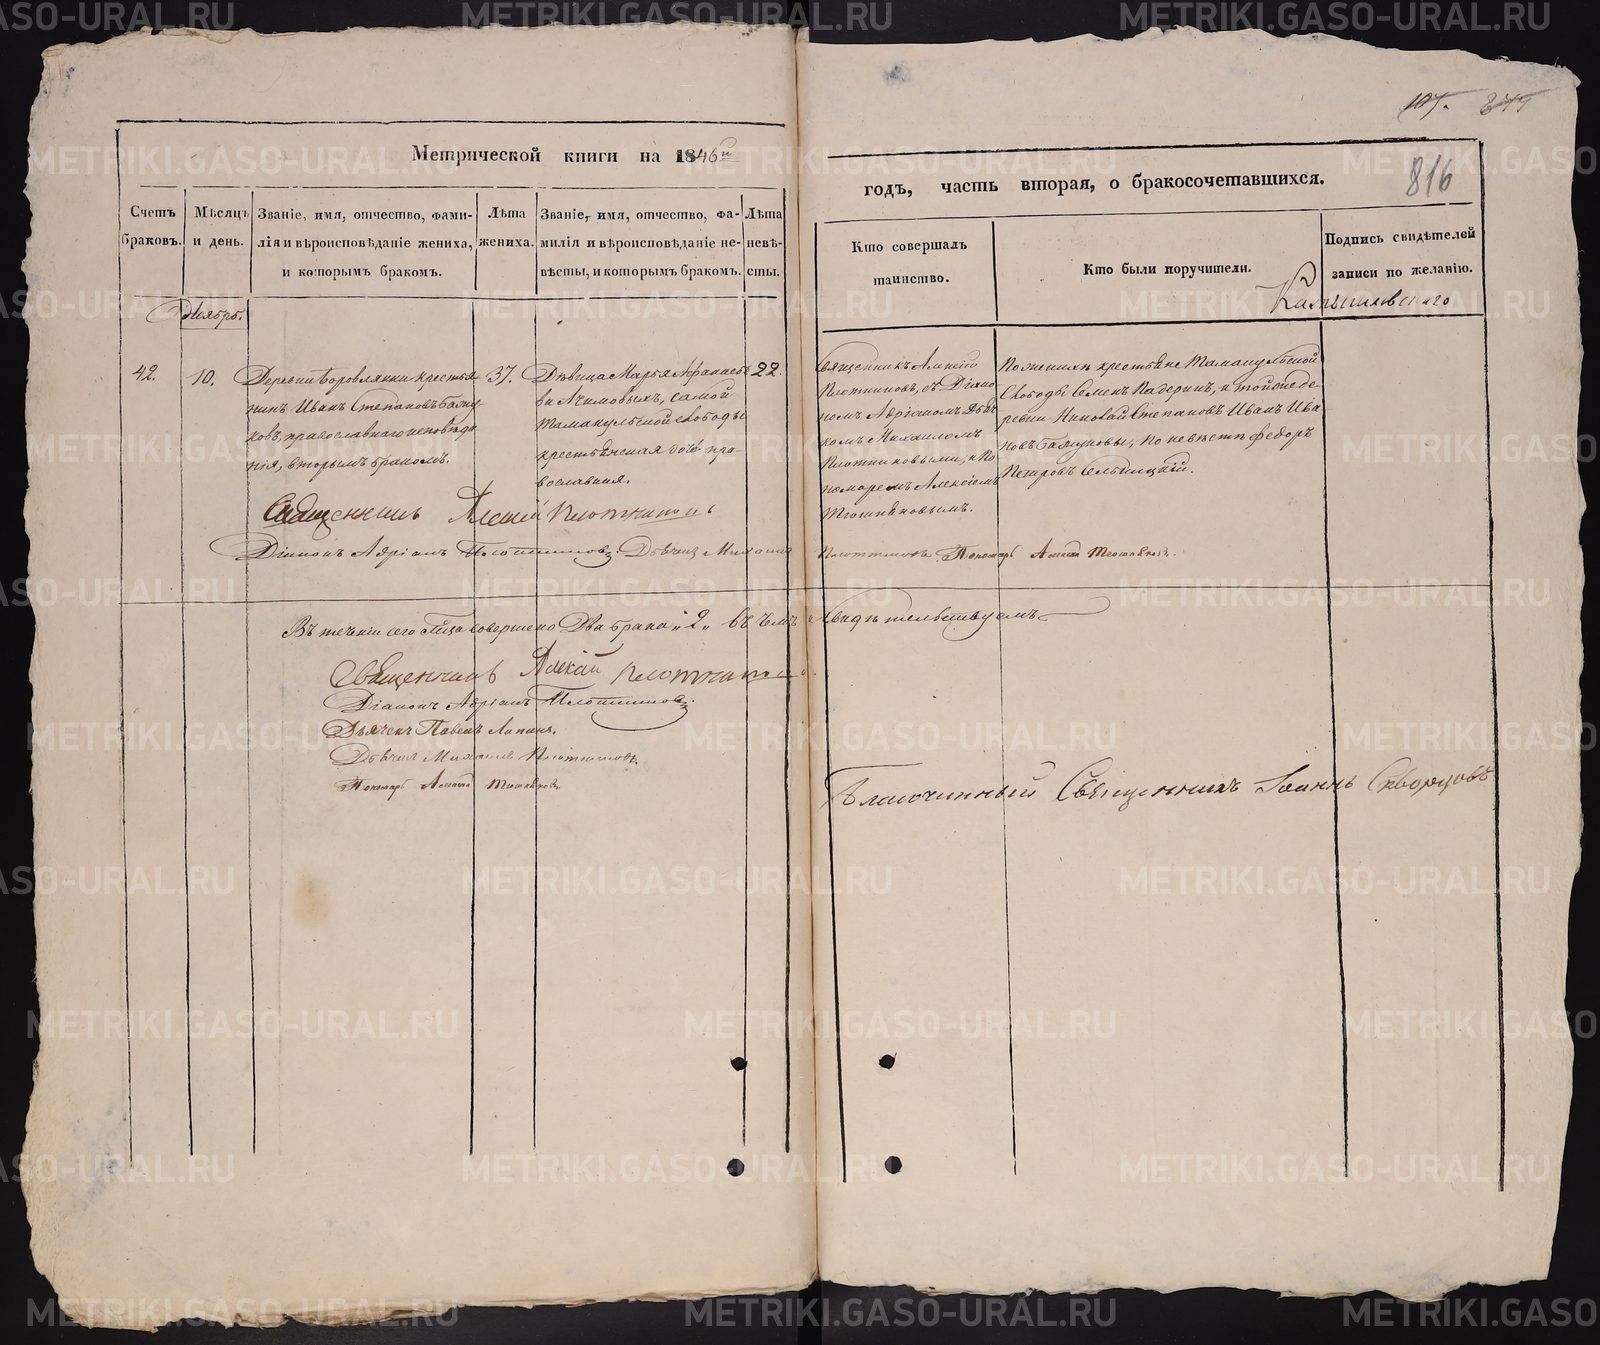 107. 879
816
Метрической книги на 1846й
годъ, часть вторая, о бракосочетавшихся.
Счетъ браковъ.
Мѣсяцъ и день.
Званіе, имя, отчество, фами-
лія и вѣроисповѣданіе жениха,
и которымъ бракомъ.
Лѣта
жениха.
Званіе, имя, отчество, фа-
милія и вѣроисповѣданіе не-
вѣсты, и которымъ бракомъ.
Лѣта
невѣ-
сты.
Кто совершалъ
таинство.
Кто были поручители.
Подпись свидѣтелей
записи по желанію.
Ноябрь.
42.
10.
Деревни Боровлянки крестья
нинъ Иванъ Степановъ
ковъ, православнаго исповѣда
нія, вторымъ бракомъ.
37.
Дѣвица Марья Афанасье
ва Ачимовыхъ, самой
Тамакульской слободы
крестьянская дочь пра-
вославная.
22.
Священникъ Алексій
Плотниковъ, съ Діако
номъ Адріаномъ Дьяч
комъ Михаиломъ
Плотниковыми, и По
номаремъ Алексіемъ
По женихѣ крестьяне Тамакульской
слободы Семенъ Падеринъ, и той же де
ревни Николай Степановъ Иванъ Ива
новъ, по невѣстѣ Федоръ
Петровъ
Священникъ Алексій Плотниковъ
Діаконъ Адріанъ Плотниковъ. Дьячекъ Михаилъ Плотниковъ. Пономарь Алексій
Въ теченіи сего м҃ца совершено два брака „2„ въ чемъ свидѣтельствуемъ
Священникъ Алексій Плотниковъ
Діаконъ Адріанъ Плотниковъ.
Дьячекъ Павелъ Лапинъ.
Дьячекъ Михаилъ Плотниковъ.
Пономарь Алексій
Благочинный Священникъ Іоаннъ Скворцовъ
METRIKI.GASO-URAL.RU